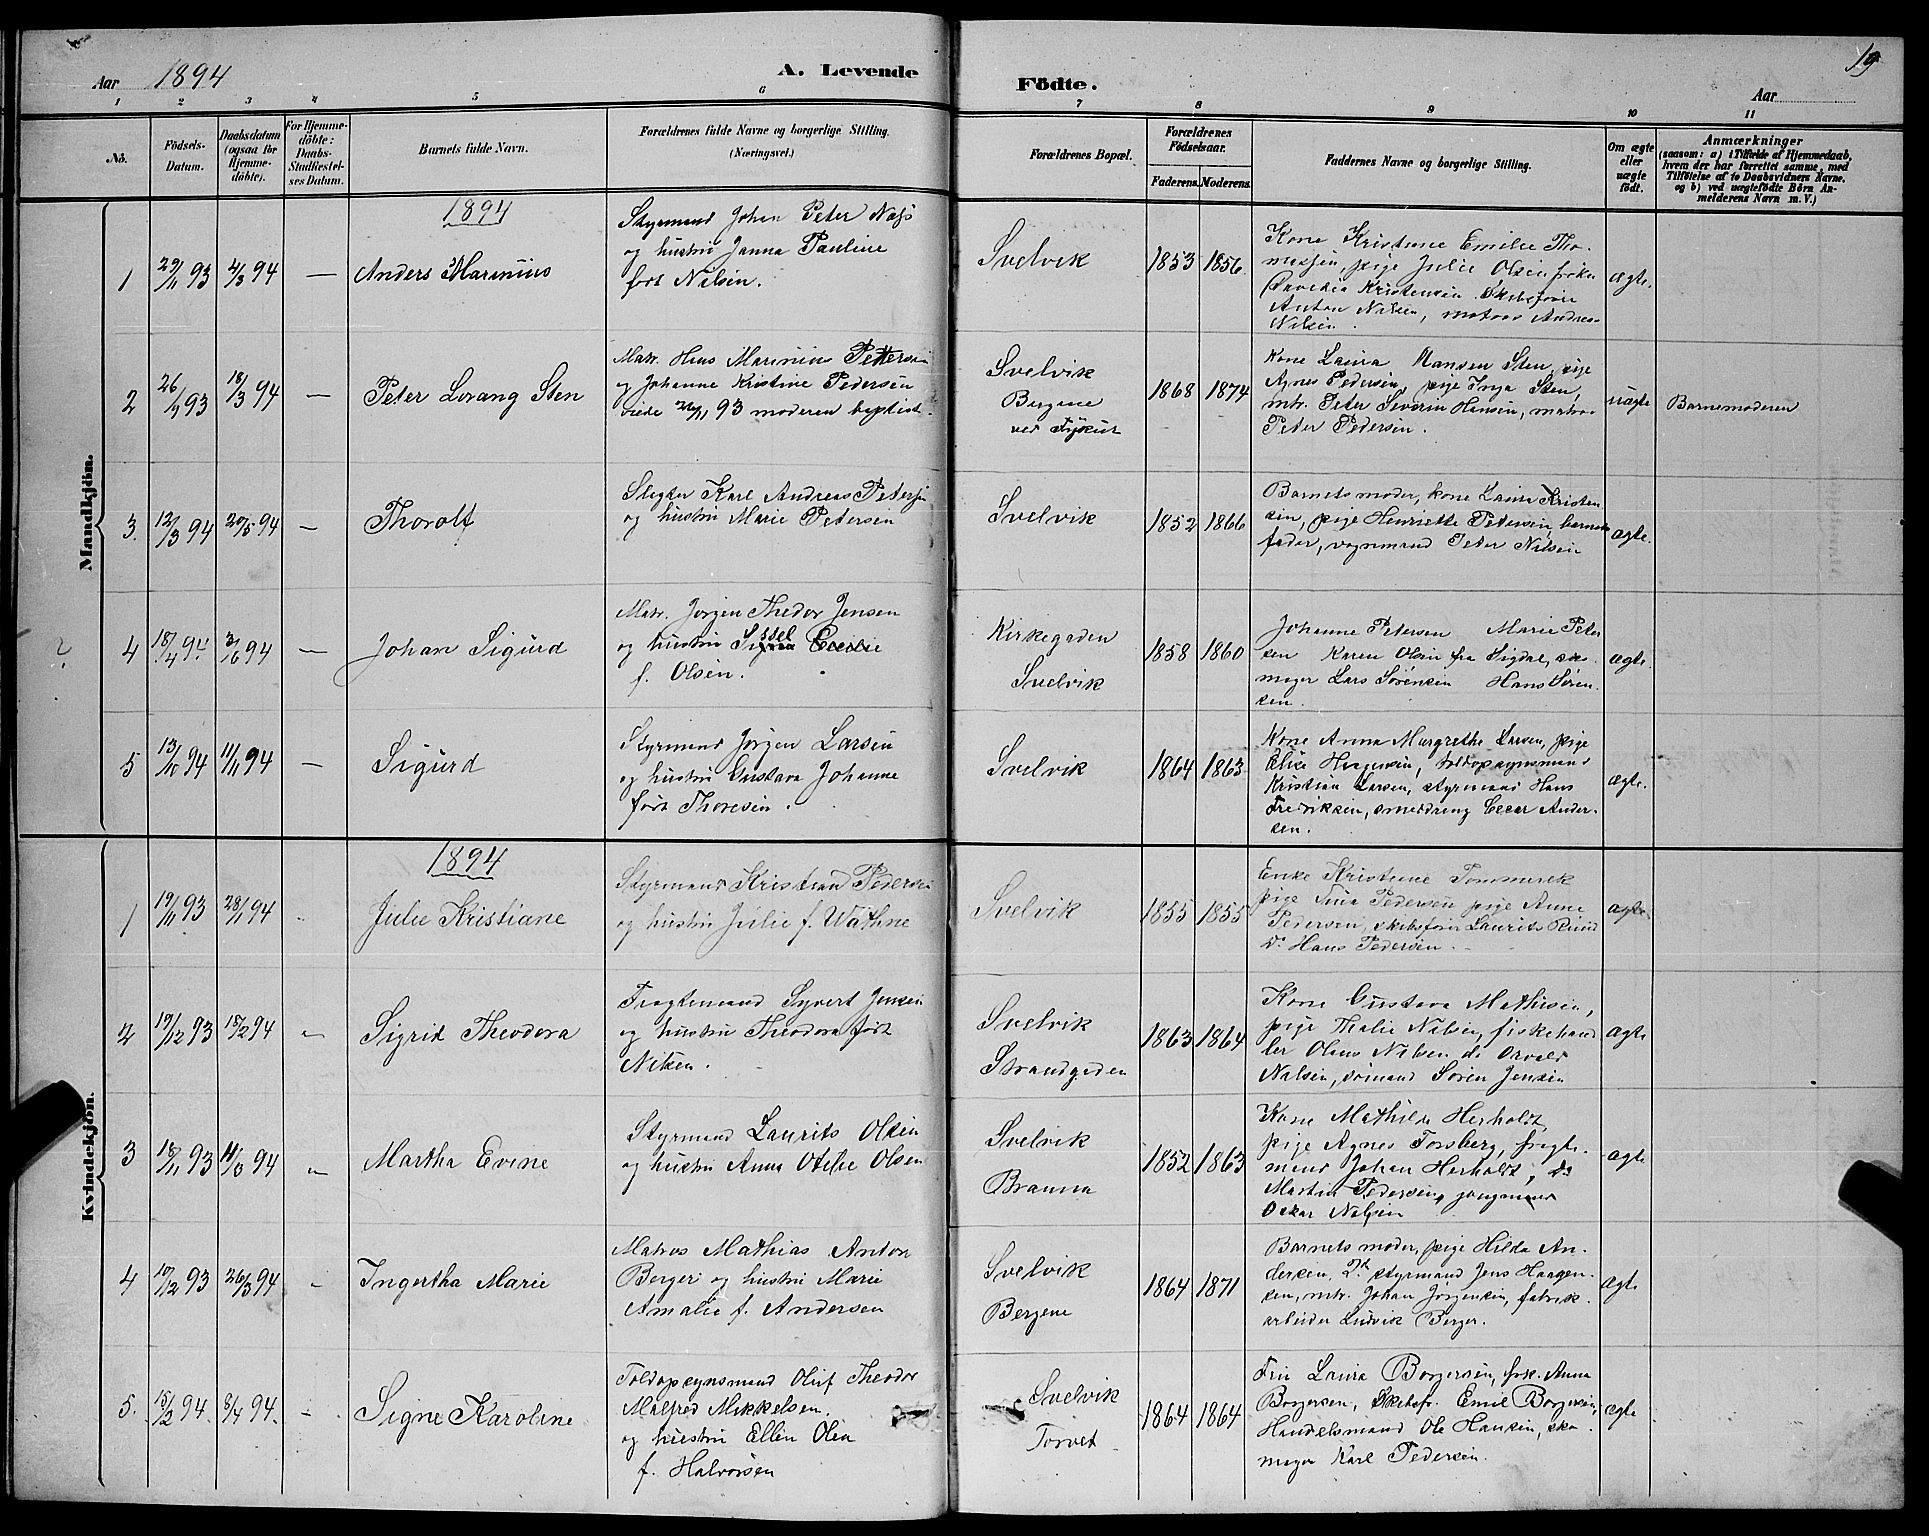 19
Aar 1894
A. Levende
Födte.
Aar
1 2 3 4 5 6 7 8 9 10 11
No.
Födsels-
Datum.
Daabsdatum
(ogsaa for
Hjemme-
döbte).
For Hjemme-
döbte:
Daabs-
Stadfæstel-
ses Datum.
Barnets fulde Navn.
Forældrenes fulde Navne og borgerlige Stilling.
(Næringsvei.)
Forældrenes Bopæl.
Forældrenes
Födselsaar.
Faderens. Moderens.
Faddernes Navne og borgerlige Stilling.
Om ægte
eller
uægte
födt.
Anmærkninger
(saasom: a) i Tilfælde af Hjemmedaab,
hvem der har forrettet samme, med
Tilföielse af to Daabsvidners Navne,
og b) ved uægtefödte Börn An-
melderens Navn m. V.)
Mandkjön.
1894
1 29/11 93 4/3 94 — Anders Marinius
Styrmand Johan Peter Næss
og hustru Janna Pauline
født Nilsen.
Svelvik
1853 1856.
Kone Kristine Emilie Tho-
massen, pige Julie Olsen, frøken
Kristensen. Skibsfører
Anton Nilsen, matros Andreas
Nilsen.
ægte.
2 26/9 93 18/3 94 — Peter Lorang Sten
Matr. Hans Marinius Pettersen
og Johanne Kristine Pedersen
viede 26/11 93 moderen baptist.
Svelvik
Bergene
ved
1868 1874
Kone Laura Hansen Sten, pige
Agnes Pedersen, pige Inga Sten,
mtr. Peter Severin Hansen, matros
Peter Pedersen.
uægte
Barnemoderen
3. 12/3 94 20/5 94 — Thorolf
Slagter Karl Andreas Petersen
og hustru Marie Petersen
Svelvik
1852 1866
Barnets moder, kone Laura Kristen
sen, pige Henriette Petersen, barnets
fader, vognmand Peter Nilsen
ægte.
?
4 18/4 94. 3/6 94 — Johan Sigurd
Matr. Jørgen Thedor Jensen
og hustru Sissel
f. Olsen.
Kirkegaden
Svelvik
1858 1860
Johanne Petersen Marie Peter
sen Karen Olsen fra Sigdal, sko-
mager Lars Sørensen Hans Søren-
sen.
ægte.
5 13/10 94 11/11 94 — Sigurd
Styrmand Jørgen Larsen
og hustru Gustava Johanne
født Thoresen.
Svelvik
1864 1863
Kone Anna Margrethe Larsen, pige
Elise Haagensen, toldopsynsmand
Kristian Larsen, styrmand Hans
Fredriksen, smeddreng Oscar Ander-
sen.
ægte.
Kvindekjön.
1894
1 19/11 93 28/1 94 Julie Kristiane
Styrmand Kristian Pedersen
og hustru Julie f. Wathne
Svelvik
1855 1855
Enke Kristine Tommerek
pige Tina Pedersen pige Anne
Pedersen, skibsfører Laurits Ruud
Do Hans Pedersen.
ægte
2 19/12 93 18/2 94 — Sigrid Theodora
Fragtemand Syvert Jensen
og hustru Theodora født
Nilsen.
Svelvik
Strandgaden
1863 1864
Kone Gustava Mathisen,
pige Thalie Nilsen, fiskehand
ler Olaus Nilsen do Osvald
Nilsen, sømand Søren Jensen
ægte
3 18/11 93 11/3 94 Martha Evine
Styrmand Laurits Olsen
og hustru Anna Otelie Olsen
Svelvik
Branna
1852 1863
Kone Mathilde Herholdt,
pige Agnes Forsberg, fragte-
mand Johan Herholdt, do
Martin Pedersen, jungmand
Oskar Nilsen
ægte
4 10/12 93 26/3 94 Ingertha Marie
Matros Mathias Anton
Berger og hustru Marie
Amalie f. Andersen
Svelvik
Bergene
1864 1871
Barnets moder, pige Hilda An-
dersen, styrmand Jens Haagen-
sen, mtr. Johan Jørgensen, fabrik-
arbeider Ludvik Berger.
ægte
5. 15/2 94. 8/4 94. — Signe Karoline
Toldopsynsmand Oluf Theodor
Malfred Mikkelsen.
og hustru Ellen Olea
f. Halvorsen
Svelvik
Torvet
1864 1864
Fru Laura Borgersen, frk. Anna
Borgersen, Skibsf. Emil Borgersen,
Handelsmand Ole Hansen, sko-
mager Karl Pedersen.
ægte